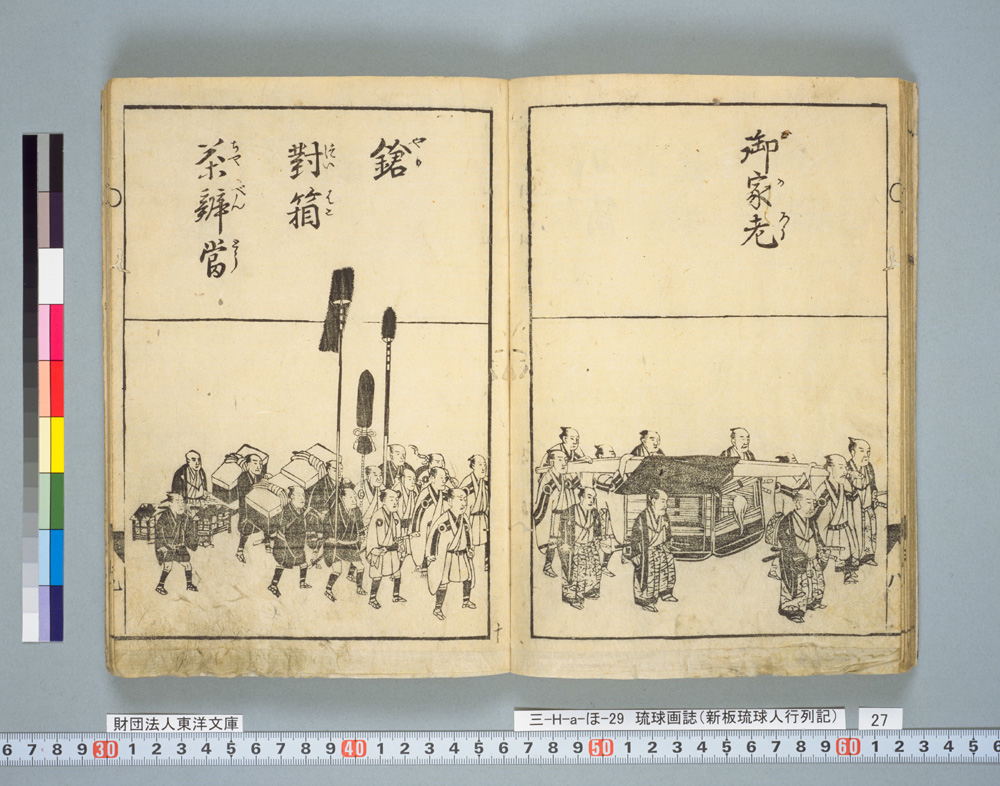 御家老
ごかろう
鎗
やり
對箱
ついはこ
茶辨當
ちやべんとう
十
財団法人東洋文庫
三-H-a-ほ-29 琉球画誌(新板琉球人行列記)
27
6 7 8 9 30 1 2 3 4 5 6 7 8 9 40 1 2 3 4 5 6 7 8 9 50 1 2 3 4 5 6 7 8 9 60 1 2 3 4 5 6